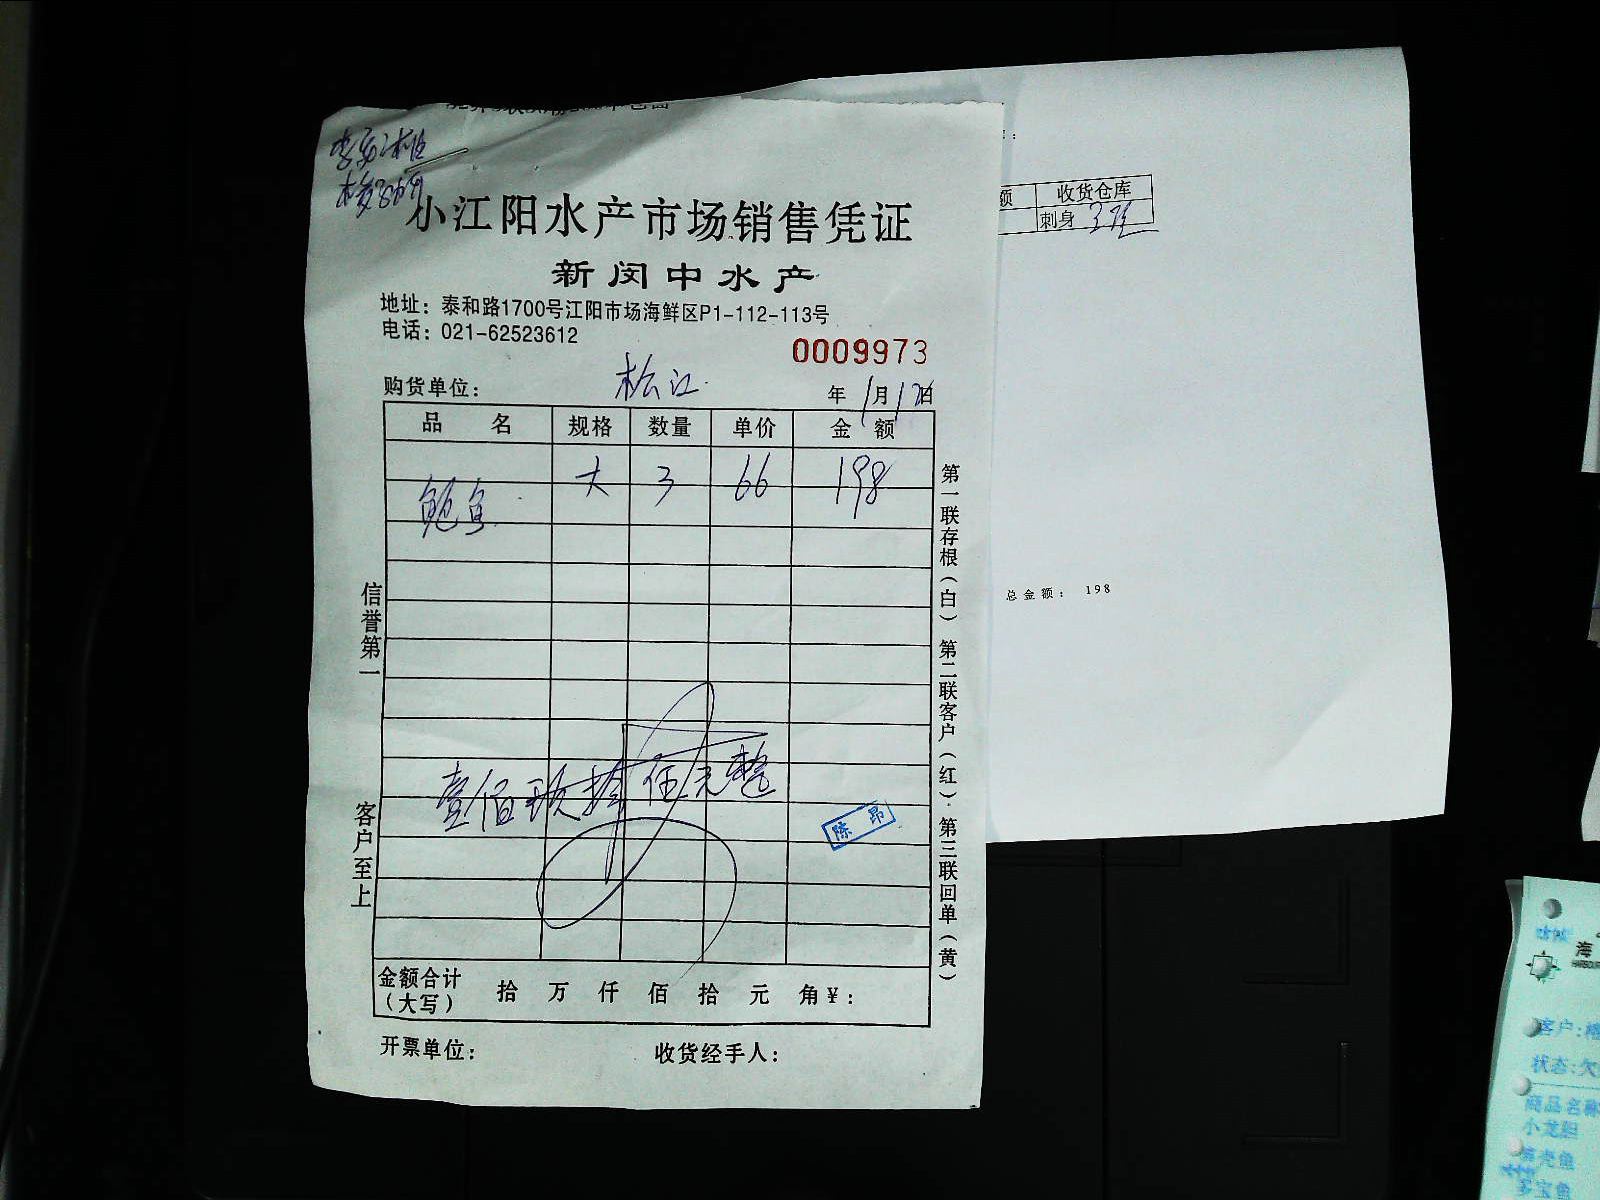 小江阳水产市场销售凭证
新闵中水产
地址：泰和路1700号江阳市场海鲜区P1-112-113号
电话：021-62523612
0009973
购货单位：松江
年 1月17日
品名 规格 数量 单价 金额
鲍鱼 大 3 66 198
壹佰玖拾 元整
陈昂
金额合计（大写） 拾 万 仟 佰 拾 元 角 ¥：
开票单位： 收货经手人：
信誉第一 客户至上
第一联存根（白） 第二联客户（红） 第三联回单（黄）
额 收货仓库
刺身
总金额： 198
海
客户：
状态：欠
商品名称
小龙胆